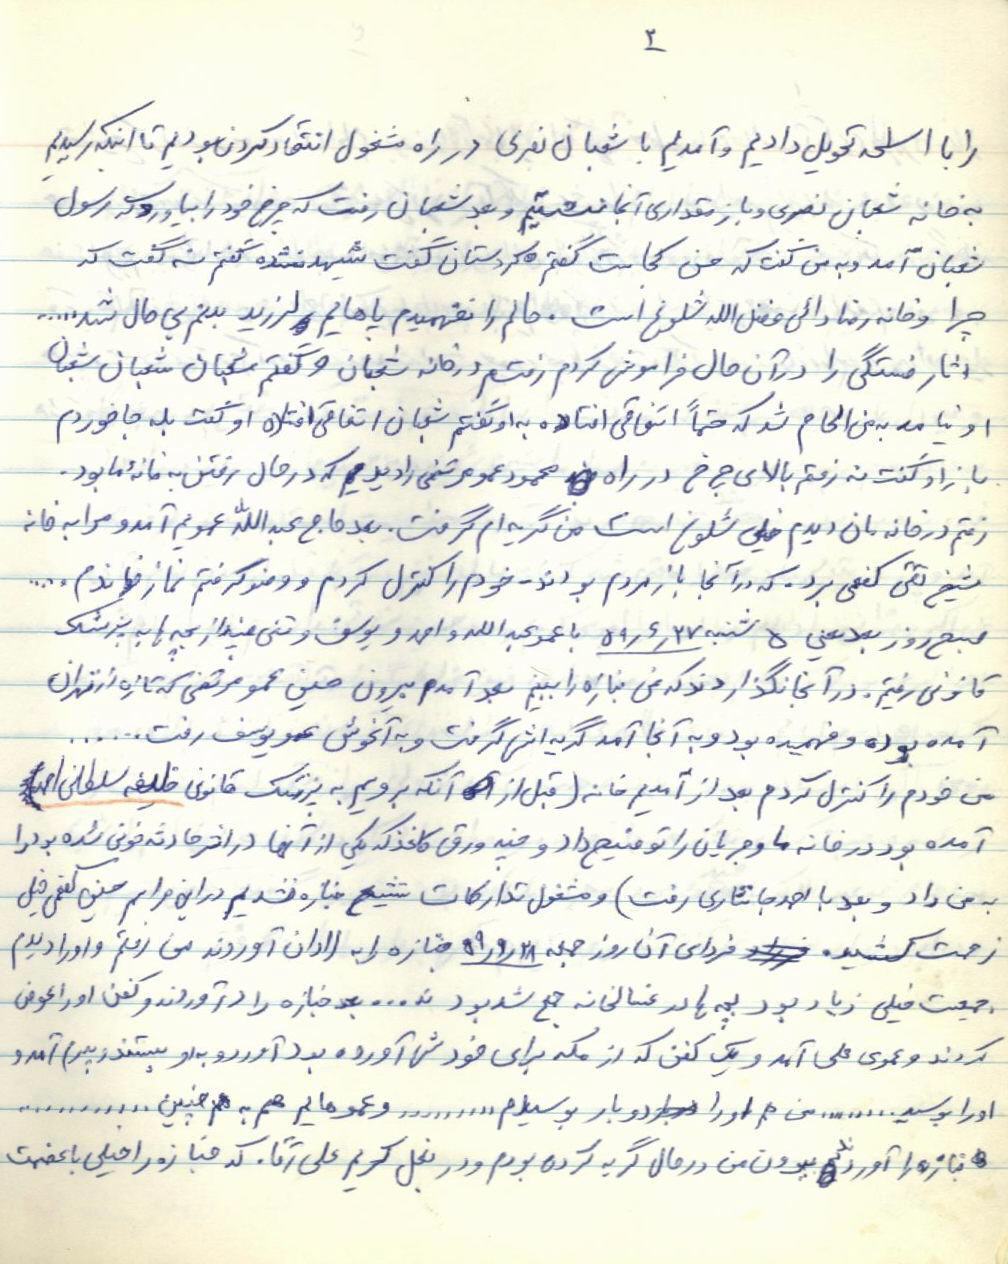 ۲
را با اسلحه تحویل دادیم و آمدیم با شعبان نصری در راه مشغول انتقاد کردن بودیم تا اینکه رسیدیم
به خانه شعبان نصری و باز مقداری آنجا نشستیم و بعد شعبان رفت که چرخ خود را بیاورد که رسول
شعبان آمد و به من گفت که حسن کجاست گفتم کردستان گفت شهید نشده گفتم نه گفت که
چرا و خانه رضا دائی فضل الله شلوغ است. حالم را نفهمیدم پاهایم لرزید بدنم بی حال شد.....
انثار خستگی را در آن حال فراموش کردم رفتم در خانه شعبان و گفتم شعبان شعبان شعبان
او نیامد به من الحام شد که حتماً اتفاقی افتاده به او گفتم شعبان اتفاقی افتاده او گفت بله جا خوردم
باز او گفت نه رفتم بالای چرخ در راه محمود عمو مرتضی را دیدیم که در حال رفتن به خانه ما بود.
رفتم در خانه مان دیدم خیلی شلوغ است من گریه ام گرفت. بعد حاج عبدالله عمویم آمد و مرا به خانه
شیخ تقی کفعمی برد. که در آنجا باز مردم بودند. خودم را کنترل کردم و وضو گرفتم نماز خواندم .....
صبح روز بعد یعنی ۵ شنبه ۵۹٫۶٫۲۷ با عمو عبدالله و احمد و یوسف و تنی چند از بچه ها به پزشک
قانونی رفتیم. در آنجا نگذاردند که من جنازه را ببینم بعد آمدم بیرون حسین عمو مرتضی که تازه از تهران
آمده بود و فهمیده بود و به آنجا آمد گریه اش گرفت و به آغوش عمو یوسف رفت......
من خودم را کنترل کردم بعد از آمدیم خانه (قبل از آنکه برویم به پزشک قانونی خلیفه سلطانی احمد
آمده بود در خانه ما و جریان را توضیح داد و چند ورق کاغذ که یکی از آنها در اثر حادثه خونی شده بود را
به من داد و بعد با احمد جانثاری رفت) و مشغول تدارکات تشیع جنازه شدیم در این مراسم حسین کفعمی خیلی
زحمت کشیده. فردای آن روز جمعه ۵۹٫۶٫۲۸ جنازه را به آوردند من رفتم و او را دیدم
جمعیت خیلی زیاد بود بچه ها در غسالخانه جمع شد بود ند... بعد جنازه را در آوردند و کفن او را عوض
کردند و عموی علی آمد و یک کفن که از مکه برای خودش آورده بود آورد و به او (پدرم) آمد و
او را بوسید........ من هم او را دوبار بوسیدم ......... و عموهایم هم به هم چنین ...........
جنازه را آوردند بیرون من در حال گریه کرده بودم و در بغل کریم علی آقا. که جنازه را خیلی با عضمت